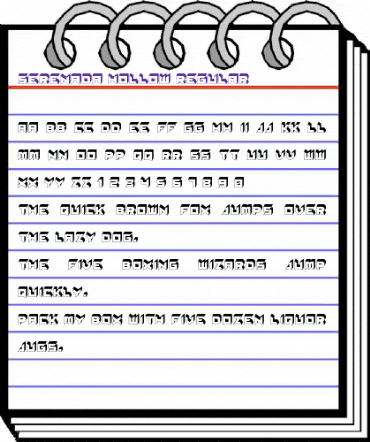 SERENADA HOLLOW REGULAR
AA BB CC DD EE FF GG HH II JJ KK LL
MM NN OO PP QQ RR SS TT UU VV WW
XX YY ZZ 1 2 3 4 5 6 7 8 9 0
THE QUICK BROWN FOX JUMPS OVER
THE LAZY DOG.
THE FIVE BOXING WIZARDS JUMP
QUICKLY.
PACK MY BOX WITH FIVE DOZEN LIQUOR
JUGS.